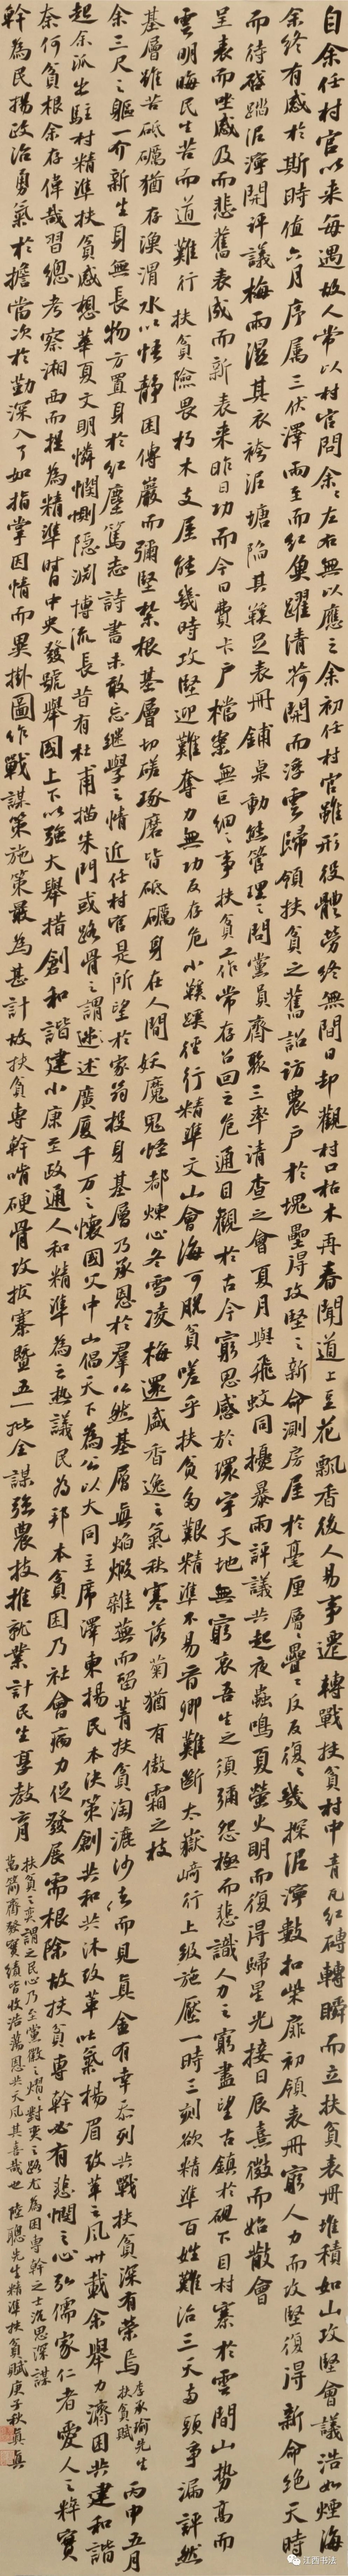 自余任村官以来每遇故人常以村官問余々左右無以應之余初任村官雖形役體勞終無間日却觀村口枯木再春聞道上豆花飄香後人易事遷轉戰扶貧村中青瓦紅磚轉瞬而立扶貧表冊堆積如山攻堅會議浩如煙海
余終有感於斯時值六月序属三伏澤雨至而紅魚躍清荷開而浮雲歸領扶貧之舊詔訪農戶於塊壘得攻堅之新命測房屋於毫厘層々疊々反反復々幾探泥濘數扣柴扉初領表冊窮人力而攻堅復得新命絕天時
而待啓踏泥濘開評議梅雨濕其衣袴泥塘陷其鞋足表冊鋪桌動態管理之問黨員齊聚三率清查之會夏月與飛蚊同擾暴雨評議共起夜蟲鳴夏螢火明而復得歸星光接日辰熹微而始散會
呈表而感及而悲舊表成而新表来昨日功而今日費卡戶檔案無巨細之事扶貧工作常存召回之危通目觀於古今窮思感於環宇天地無窮哀吾生之須彌怨極而悲識人力之窮盡望古鎮於硯下目村寨於雲間山勢高而
雲明晦民生苦而道難行扶貧險畏朽木支屋能幾時攻堅迎難奪力無功反存危小蹊徑行精準文山會海可脫貧嗟乎扶貧多艱精準不易卿難斷太嶽﨑行上級施壓一時三刻欲精準百姓難治三天兩頭爭漏評然
基層雖苦砥礪猶存漁渭水以悟靜困傅巖而彌堅紮根基層切磋琢磨皆砥礪身在人間妖魔鬼怪都煉心冬雪凌梅還盛香逸之氣秋寒落菊猶有傲霜之枝
余三尺之軀一介新生身無長物方置身於紅塵篤志詩書未敢忘继學之情近任村官是所望於家翁投身基層乃承恩於羣公然基層真焰煅雜蕪而留菁扶貧淘漉沙而見真金有幸忝列共戰扶貧深有榮焉 李承瑜先生扶貧賦 丙申五月
起余派出駐村精準扶貧感想華夏文明憐憫惻隱淵博流長昔有杜甫描朱門或路骨之謂述廣廈千万之懷國父中山倡天下為公以大同主席澤東揚民本決策創共和共沐改革吐氣楊眉改革之風卅載余舉力濟困共建和諧
奈何貧根余存偉哉習總考察湘西而提為精準時中央發號舉國上下以強大舉措創和諧建小康至政通人和精準為之热議民為邦本貧困乃社會病力促發展需根除故扶貧專幹必有悲憫之心弘儒家仁者愛人之粹實
幹為民揚政治勇氣於擔當次於勤深入了如指掌因情而異掛圖作戰謀策施策最為甚計故扶貧專幹啃硬骨攻拔寨暨五一批全謀強農技推就業計民生享教育
扶貧之責謂之民心乃至黨徽之熠對責之路尤為困專幹之士沉思深謀
萬箭齊發實績皆收浩蕩恩共天凡其喜哉也 陸聰先生精準扶貧賦庚子秋真真
江西书法